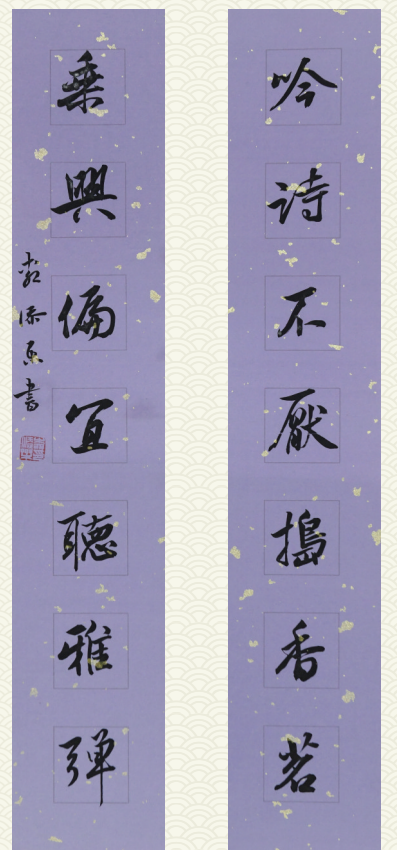 吟詩不厭搗香茗
乘興偏宜聽雅彈
書